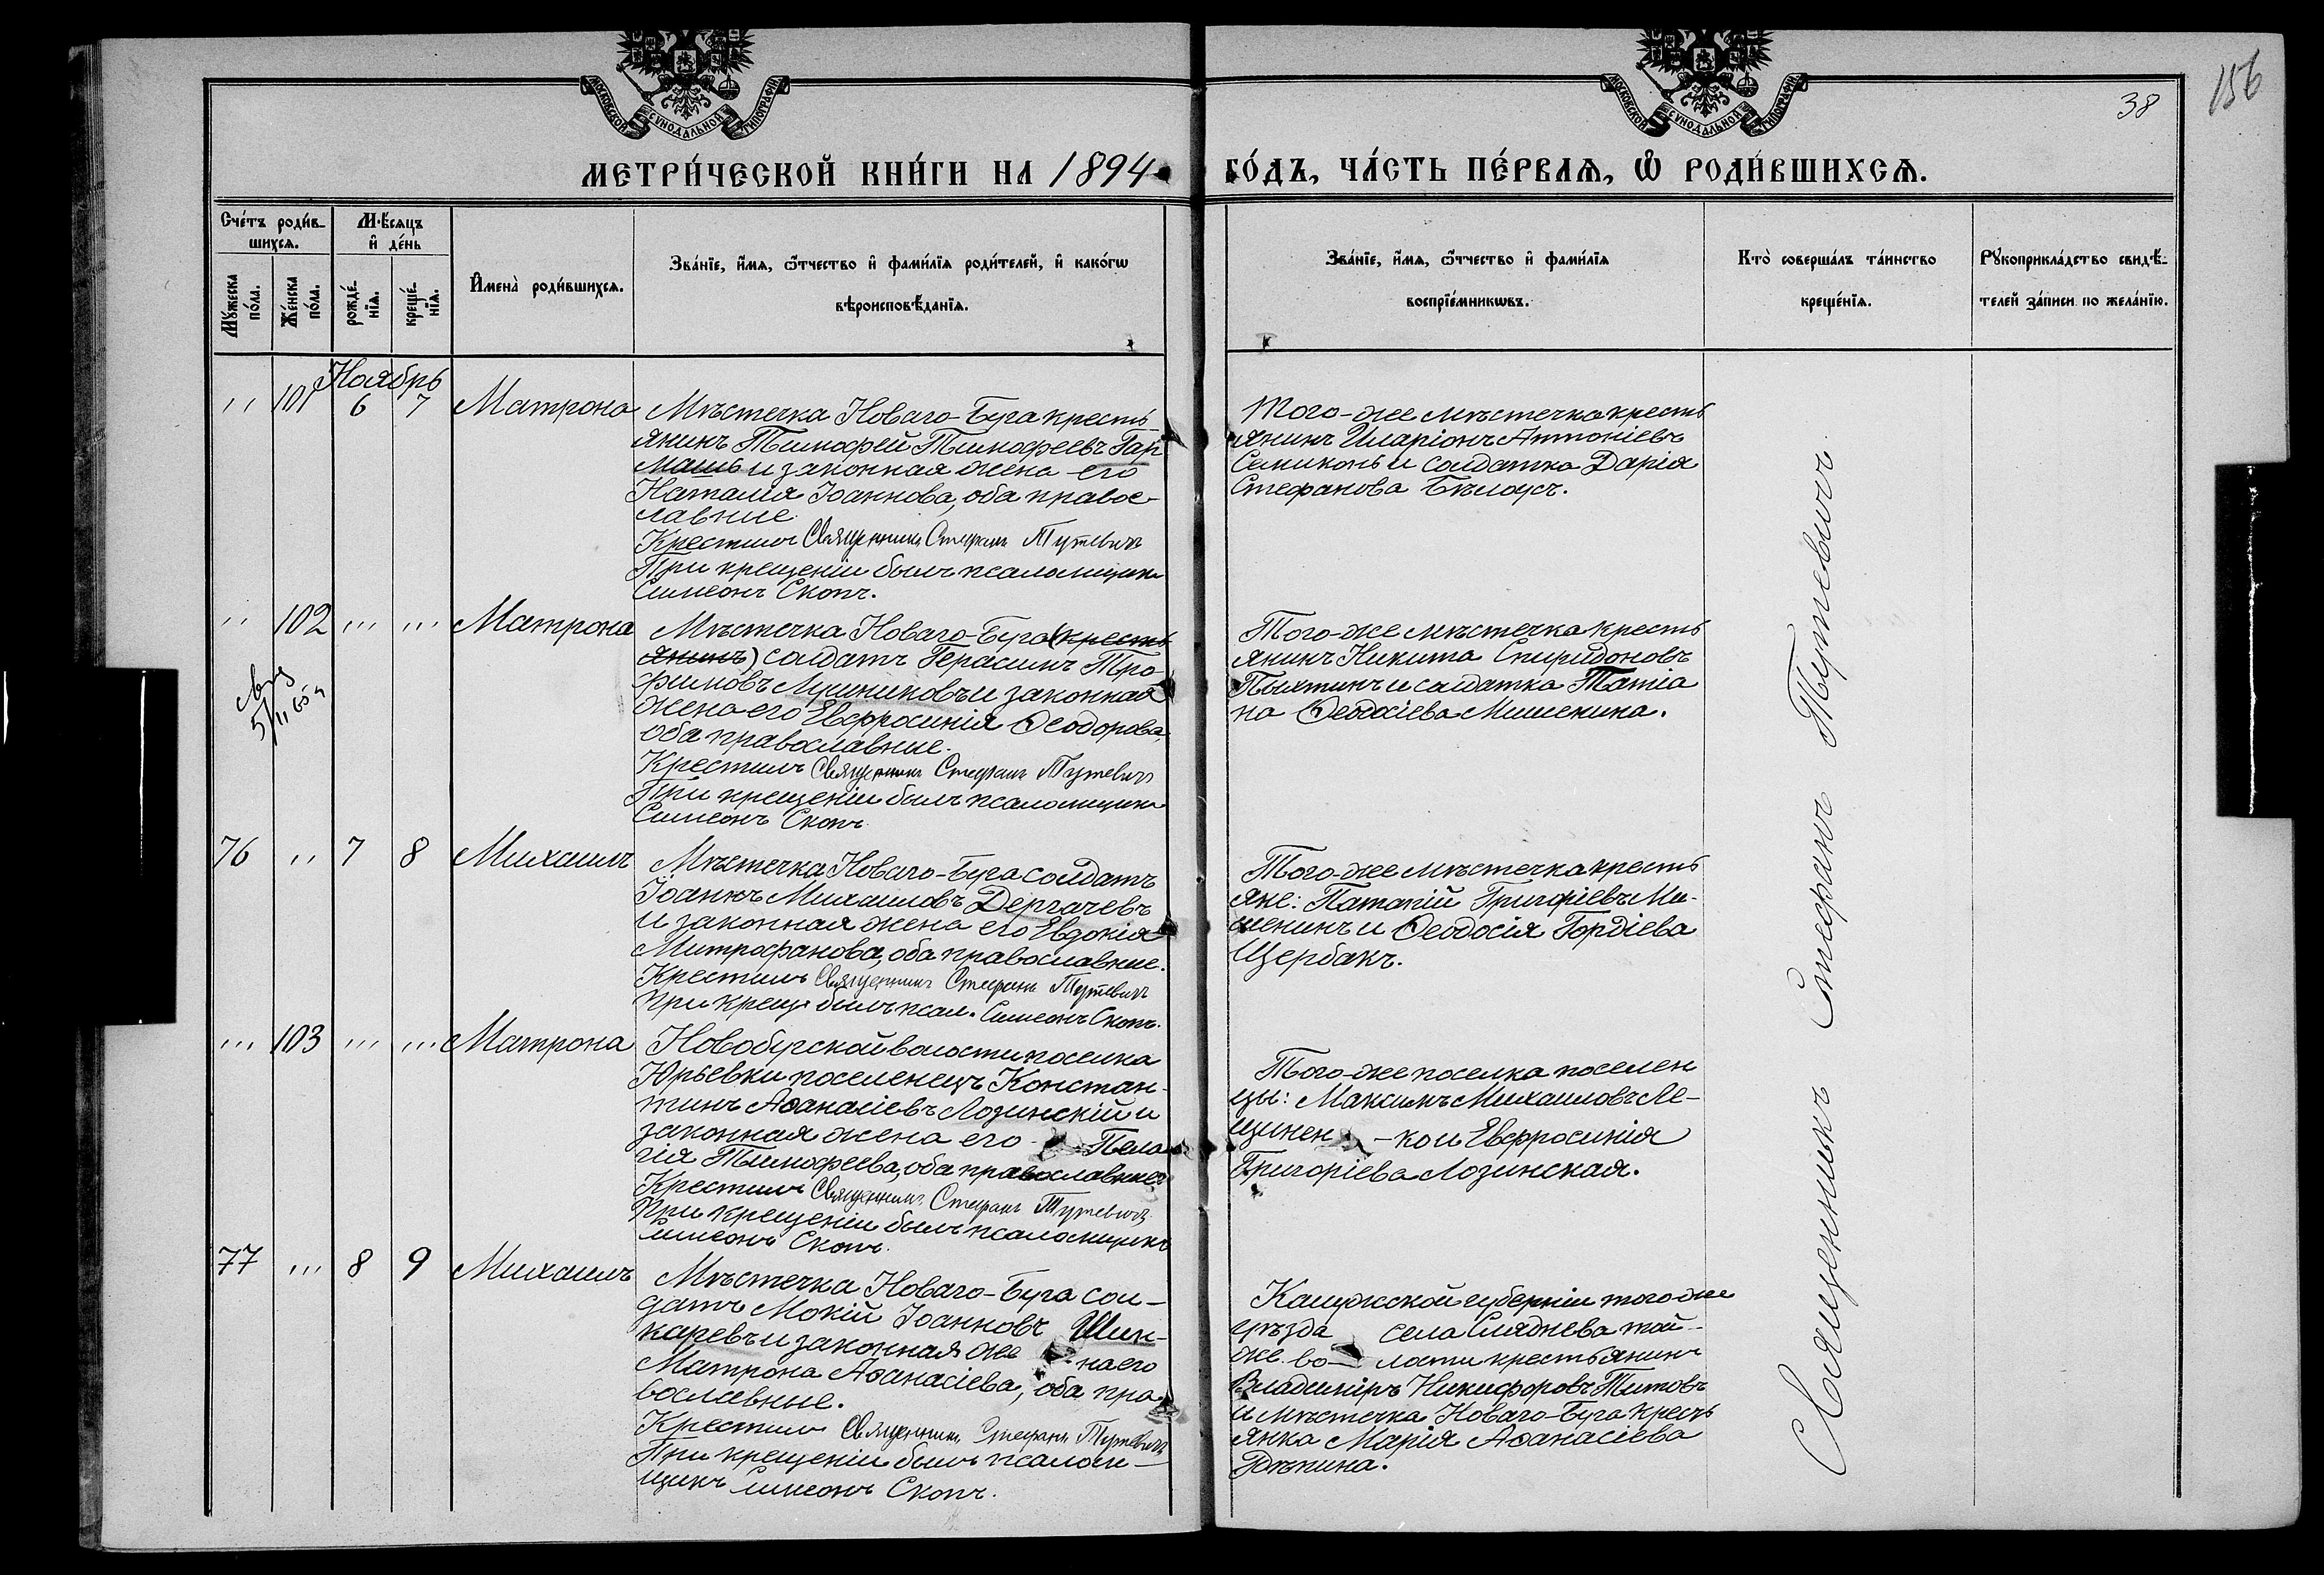 МОСКОВСКОЙ СѴНОДАЛЬНОЙ ТИПОГРАФІИ
МОСКОВСКОЙ СѴНОДАЛЬНОЙ ТИПОГРАФІИ
38
156
МЕТРИ́ЧЕСКОЙ КНИ́ГИ НА 1894 ГО́ДЪ, ЧА́СТЬ ПЕ́РВАѦ, Ѽ РОДИ́ВШИХСѦ.
Сче́тъ роди́в-
шихсѧ.
Мѣ́сѧцъ
и҆ де́нь
Мꙋ́жеска
по́ла.
Же́нска
по́ла.
рожде́-
нїѧ.
креще́-
нїѧ.
И҆мена̀ роди́вшихсѧ.
Зва́нїе, и҆́мѧ, ѻ҆́тчество и҆ фами́лїѧ роди́телей, и҆ како́гѡ
вѣроисповѣ́данїѧ.
Зва́нїе, и҆́мѧ, ѻ҆́тчество и҆ фами́лїѧ
воспрїе́мникѡвъ.
Кто̀ соверша́лъ та́инство
креще́нїѧ.
Рꙋкоприкла́дство свидѣ́-
телей за́писи по жела́нїю.
Ноябрь
,, 101 6 7 Матрона
Мѣстечка Новаго-Буга кресть-
янинъ Тимофей Тимофеевъ Гар-
машъ и законная жена его
Наталия Іоаннова, оба право-
славные.
Крестилъ Священникъ Стефанъ Путевичъ
При крещеніи былъ псаломщикъ
Симеонъ Скопъ.
Того-же мѣстечка кресть
янинъ Иларіонъ Антоніевъ
Семиконь и солдатка Дарія
Стефанова Бѣлоусъ.
,, 102 ,,, ,,, Матрона
5/II 65 г
Мѣстечка Новаго-Буга (кресть
янинъ) солдатъ Герасимъ Тро-
фимовъ Лушниковъ и законная
жена его Евфросинія Ѳеодорова,
оба православные.
Крестилъ Священникъ Стефанъ Путевичъ
При крещеніи былъ псаломщикъ
Симеонъ Скопъ.
Того-же мѣстечка кресть
янинъ Никита Спиридоновъ
Пыхтинъ и солдатка Татіа
на Ѳеодосіева Мишенина.
76 ,, 7 8 Михаилъ
Мѣстечка Новаго-Буга солдатъ
Іоаннъ Михаиловъ Дергачевъ
и законная жена его Евдокія
Митрофанова, оба православные.
Крестилъ Священникъ Стефанъ Путевичъ
При крещ. былъ псал. Симеонъ Скопъ.
Того-же мѣстечка кресть
яне: Патапій Григоріевъ Ми-
шенинъ и Ѳеодосія Гордіева
Щербакъ.
,,, 103 ,,, ,,, Матрона
Новобугской волости поселка
Юрьевки поселенецъ Констан-
тинъ Аѳанасіевъ Лозинскій и
законная жена его Пела
гія Тимофеева, оба православные
Крестилъ Священникъ Стефанъ Путевичъ
При крещеніи былъ псаломщикъ
Симеонъ Скопъ.
Того-же поселка поселен
цы: Максимъ Михаиловъ Ле-
щинен - ко и Евфросинія
Григоріева Лозинская.
77 ,,, 8 9 Михаилъ
Мѣстечка Новаго-Буга сол-
датъ Мокій Іоанновъ Шин-
каревъ и законная же на его
Матрона Аѳанасіева, оба пра-
вославные.
Крестилъ Священникъ Стефанъ Путевичъ
При крещеніи былъ псалом-
щикъ Симеонъ Скопъ.
Калужской губерніи того-же
уѣзда села Сляднева той-
же во- лости крестьянинъ
Владиміръ Никифоровъ Титовъ
и мѣстечка Новаго-Буга кресть
янка Марія Аѳанасіева
Рѣпина.
Священникъ Стефанъ Путевичъ